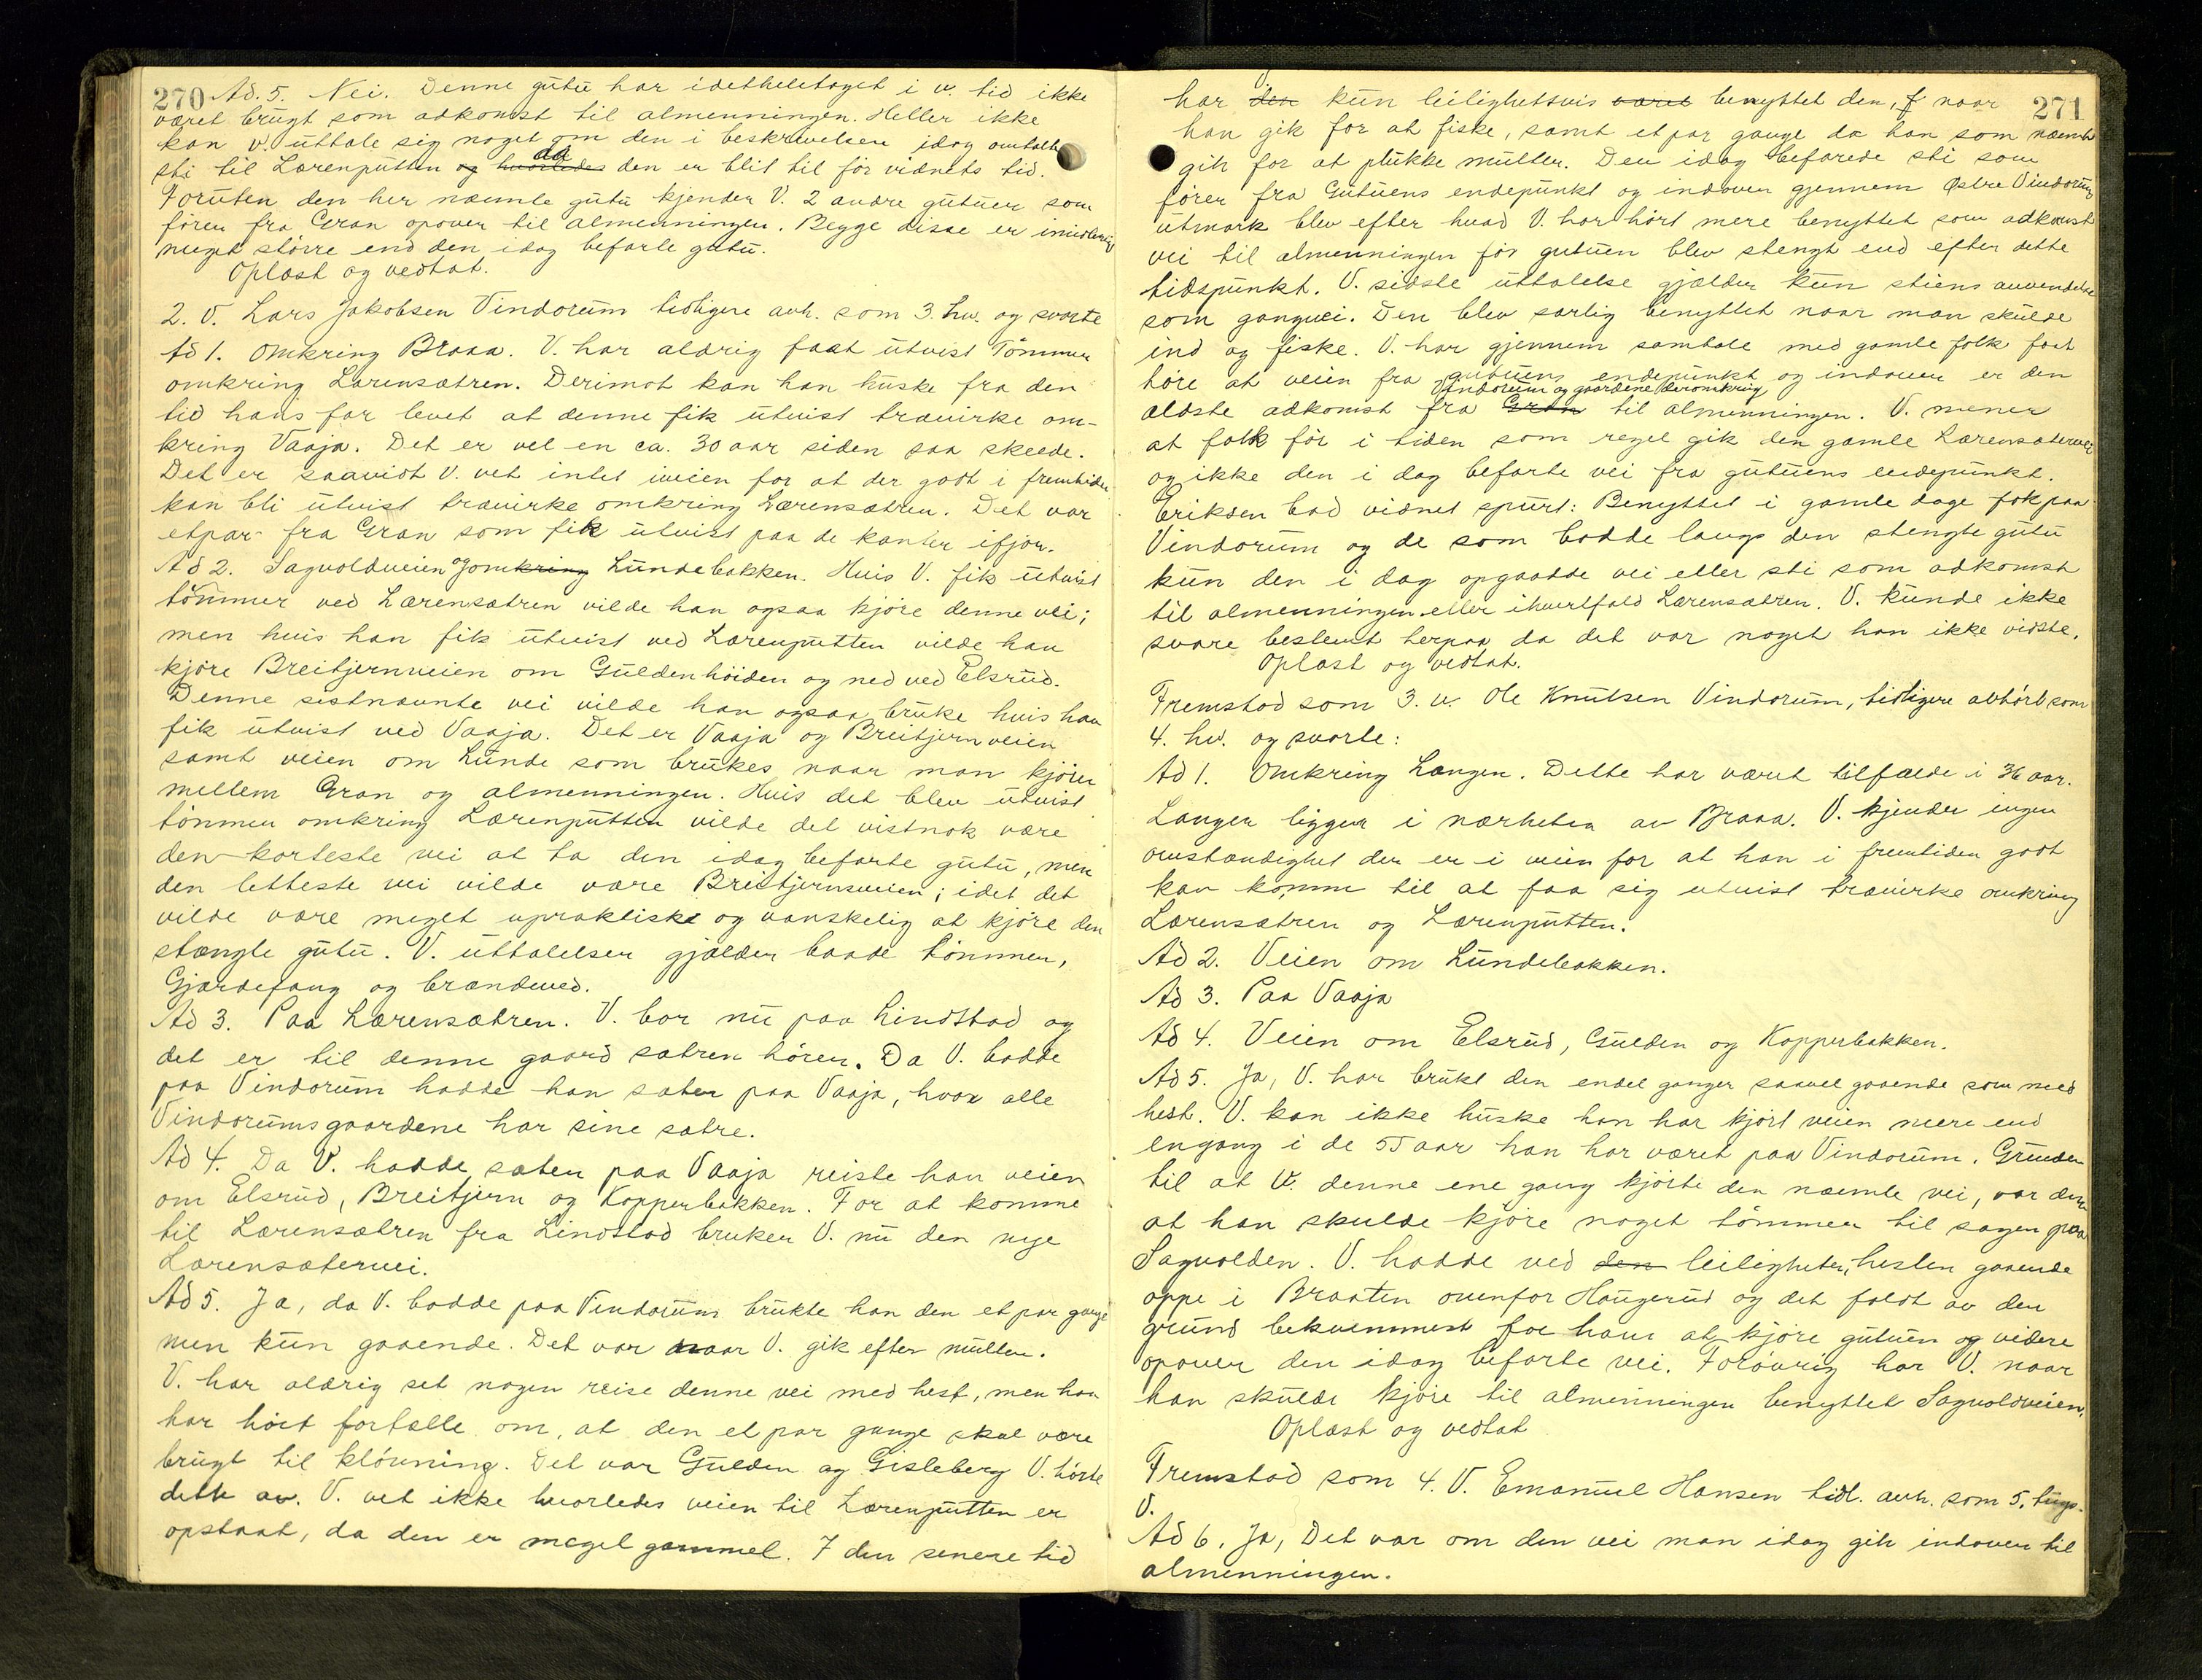 270 Ad. 5. Nei. Denne gutu har idetheletaget i v. tid ikke
været brugt som adkomst til almenningen. Heller ikke
kan v. uttale sig noget om den i beskrivelsen idag omtalte
sti til Lærenputten og hvorledes da den er blit til før vidnets tid.
Foruten den her nævnte gutu kjender V. 2 andre gutuer som
fører fra Gran opover til almenningen. Begge disse er imidlertid
meget større end den idag befarte gutu.
Oplæst og vedtat.
2. V. Lars Jakobsen Vindorum tidligere avh. som 3. hv. og svarte
Ad 1. Omkring Braaa. V. har aldrig faat utvist Tømmer
omkring Lærensætren. Derimot kan han huske fra den
tid hans far levet at denne fik utvist trævirke om-
kring Vaaja. Det er vel en ca. 30 aar siden saa skeede.
Det er saavidt V. vet intet iveien for at der godt i fremtiden
kan bli utvist trævirke omkring Lærensætren. Det var
etpar fra Gran som fik utvist paa de kanter ifjor.
Ad 2. Sagvoldveien og omkring Lundebakken. Hvis V. fik utvist
tømmer ved Lærensætren vilde han ogsaa kjøre denne vei;
men hvis han fik utvist ved Lærenputten vilde han
kjøre Breitjernveien om Guldenhøiden og ned ved Elsrud.
Denne sistnævnte vei vilde han ogsaa bruke hvis han
fik utvist ved Vaaja. Det er Vaaja og Breitjernveien
samt veien om Lunde som brukes naar man kjører
mellem Gran og almenningen. Hvis det blev utvist
tømmer omkring Lærenputten vilde det vistnok være
den korteste vei at ta den idag befarte gutu, men
den letteste vei vilde være Breitjernsveien; idet det
vilde være meget upraktiskt og vanskelig at kjøre den
stængte gutu. V. uttalelser gjælder baade tømmer,
Gjærdefang og brændeved.
Ad 3. Paa Lærensætren. V. bor nu paa Lindstad og
det er til denne gaard sætren hører. Da V. bodde
paa Vindorum hadde han sæter paa Vaaja, hvor alle
Vindorumsgaardene har sine sætre.
Ad 4. Da V. hadde sæter paa Vaaja reiste han veien
om Elsrud, Breitjern og Kopperbakken. For at komme
til Lærensætren fra Lindstad bruker V. nu den nye
Lærensætervei.
Ad 5. Ja, da V. bodde paa Vindorum brukte han den et par gange
men kun gaaende. Det var naar V. gik efter multer.
V. har aldrig set nogen reise denne vei med hest, men han
har hørt fortælle om, at den et par gange skal være
brugt til kløvning. Det var Gulden og Gisleberg V. hørte
dette av. V. vet ikke hvorledes veien til Lærenputten er
opstaat, da den er meget gammel. I den senere tid
271
har den kun leilighetsvis været benyttet den, f naar
han gik for at fiske, samt et par gange da han som nævnt
gik for at plukke multer. Den idag befarede sti som
fører fra Gutuens endepunkt og indover gjennem Østre Vindorum
utmark blev efter hvad V. har hørt mere benyttet som adkomst
vei til almenningen før gutuen blev stengt end efter dette
tidspunkt. V. sidste uttalelse gjælder kun stiens anvendelse
som gangvei. Den blev særlig benyttet naar man skulde
ind og fiske. V. har gjennem samtale med gamle folk faat
høre at veien fra gutuens endepunkt og indover er den
Vindorum og gaardene deromkring
ældste adkomst fra Gran til almenningen. V. mener
at folk før i tiden som regel gik den gamle Lærensætervei
og ikke den i dag befarte vei fra gutuens endepunkt.
Eriksen bad vidnet spurt: Benyttet i gamle dage folk paa
Vindorum og de som bodde langs den stengte gutu
kun den i dag opgaadde vei eller sti som adkomst
til almenningen eller ihvertfald Lærensætren. V. kunde ikke
svare bestemt herpaa da det var noget han ikke vidste.
Oplæst og vedtat.
Fremstod som 3. v. Ole Knutsen Vindorum, tidligere avhørt som
4. hv. og svarte:
Ad 1. Omkring Langen. Dette har været tilfælde i 36 aar.
Langen ligger i nærheten av Braaa. V. kjender ingen
omstændighet der er i veien for at han i fremtiden godt
kan komme til at faa sig utvist trævirke omkring
Lærensætren og Lærenputten.
Ad 2. Veien om Lundebakken.
Ad 3. Paa Vaaja
Ad 4. Veien om Elsrud, Gulden og Kopperbakken.
Ad 5. Ja, V. har brukt den endel ganger saavel gaaende som med
hest. V. kan ikke huske han har kjørt veien mere end
engang i de 55 aar han har været paa Vindorum. Grunden
til at V. denne ene gang kjørte den nævnte vei, var den
at han skulde kjøre noget tømmer til sagen paa
Sagvolden. V. hadde ved den leiligheten, hesten gaaende
oppe i Braaten ovenfor Haugerud og det faldt av den
grund bekvemmest for ham at kjøre gutuen og videre
opover den idag befarte vei. Forøvrig har V. naar
han skulde kjøre til almenningen benyttet Sagvoldveien.
Oplæst og vedtat
Fremstod som 4. V. Emanuel Hansen tidl. avh. som 5. tings-
V.
Ad 6. Ja, Det var om den vei man idag gik indover til
almenningen.